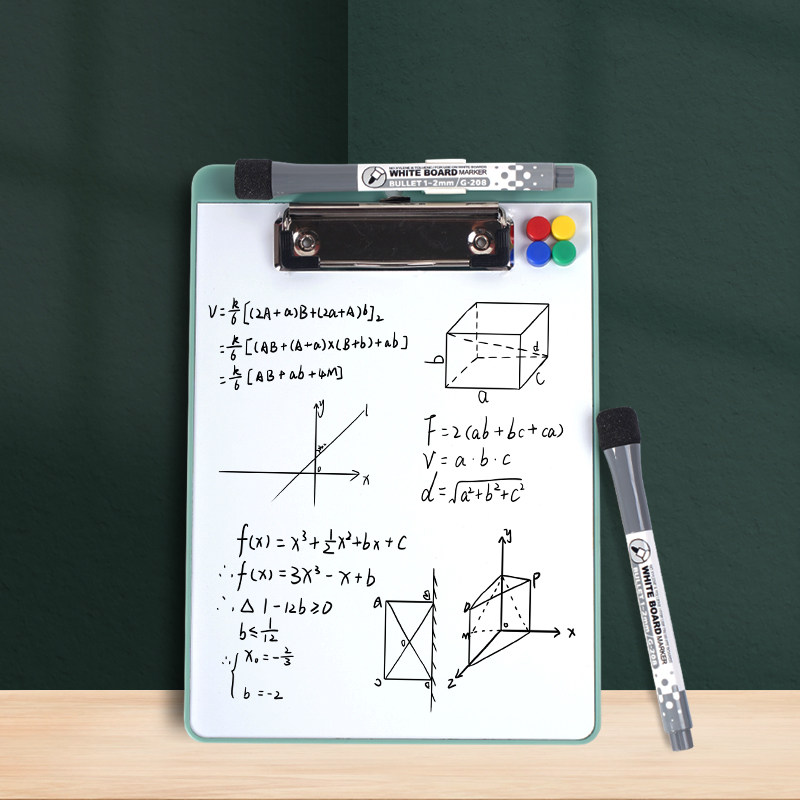 WHITE BOARD MARKER
BULLET 1-2mm/G-208
V=k/6[(2A+a)B+(2a+A)b]₂
=k/6[(AB+(A+a)×(B+b)+ab]
=k/6[AB+ab+4M]
b
d
c
a
y
l
o
x
F=2(ab+bc+ca)
V=a·b·c
d=√a²+b²+c²
f(x)=x³+1/2x²+bx+c
∴f(x)=3x³-x+b
∴△1-12b≥0
b≤1/12
∴{x₀=-2/3
b=-2
A
B
o
y
P
D
M
o
x
z
WHITE BOARD MARKER